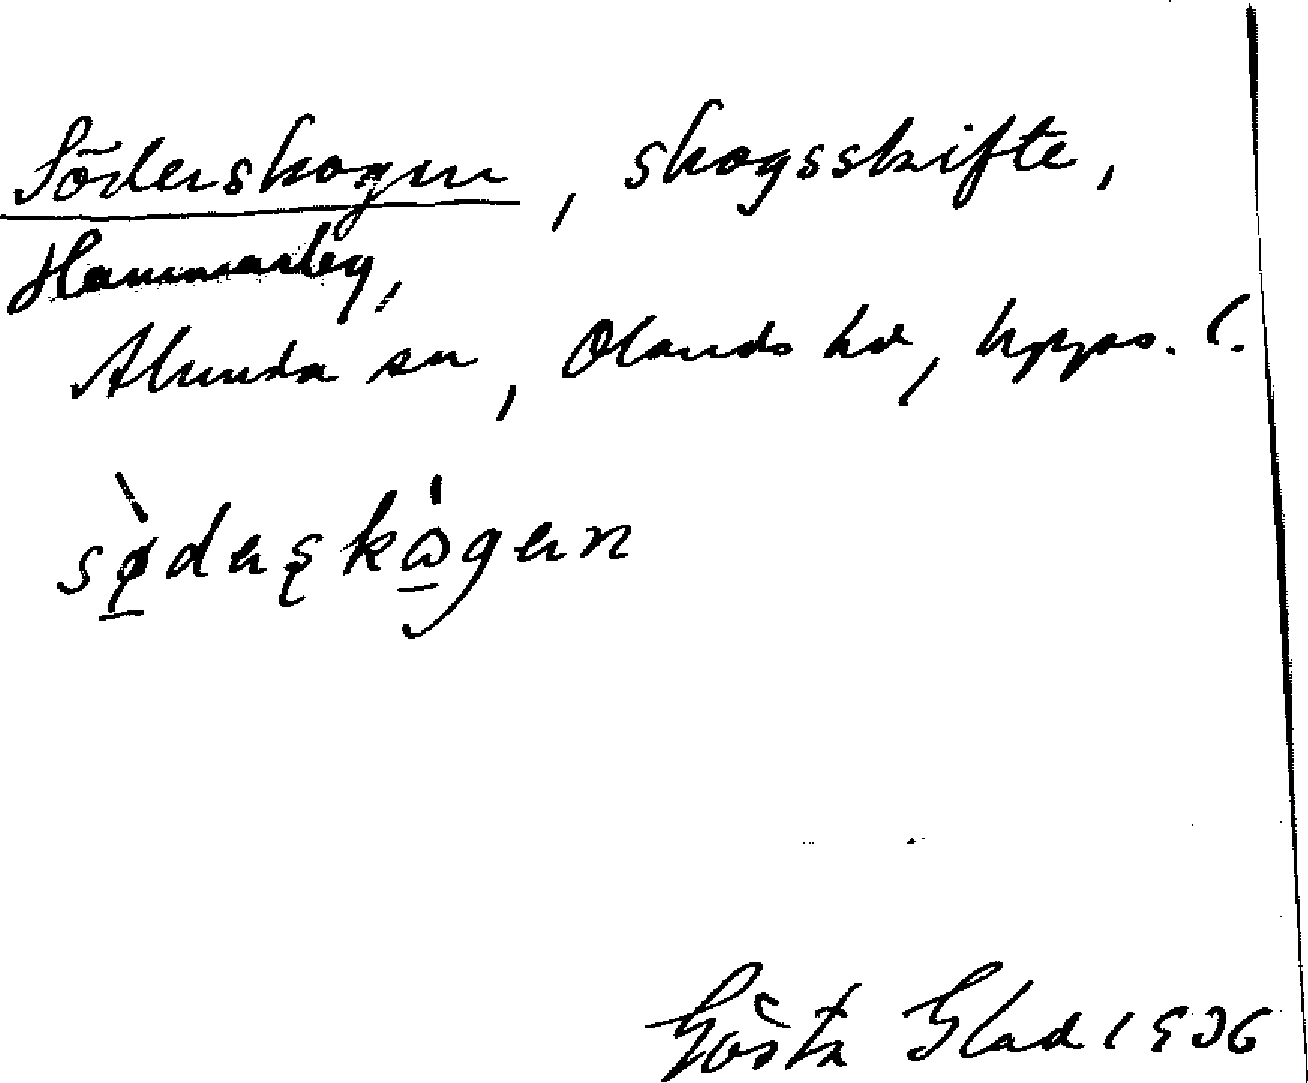 Söderskogen, skogsskifte,
Hammarby,
Alunda sn, Olands hd, Upps. l.
sø̀derskógen
Gösta Glad 1936